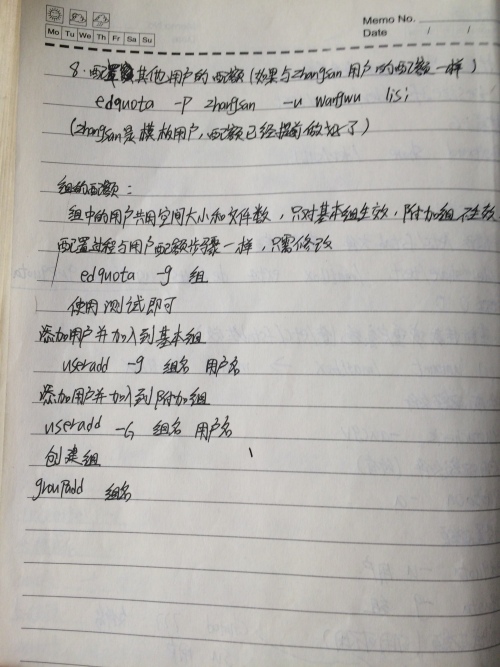 Memo No.
Mo Tu We Th Fr Sa Su
Date / /
8. 配置其他用户的配额(如果与zhangsan用户的配额一样)
edquota -P zhangsan -u wangwu lisi
(zhangsan是模板用户,配额已经提前做好了)
组的配额:
组中的用户共用空间大小和文件数,只对基本组生效,附加组不生效
配置过程与用户配额步骤一样,只需修改
edquota -g 组
使用测试即可
添加用户并加入到基本组
useradd -g 组名 用户名
添加用户并加入到附加组
useradd -G 组名 用户名
创建组
groupadd 组名